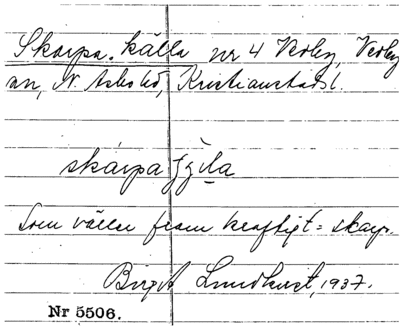 Skarpa källa nr 4 Verby, Verby
an, N. Åsbo hd, Kristianstads l.
skárpa
som väller fram kraftigt = skarp.
Birgit Lundkvist, 1937.
Nr 5506.